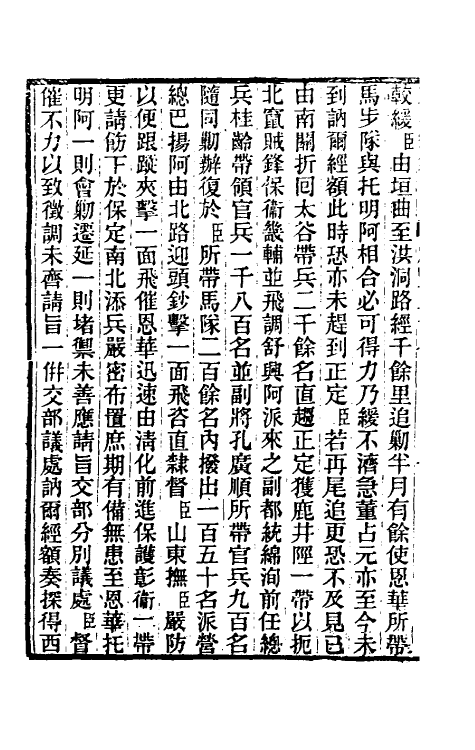 較緩臣由垣曲至洪洞路經千餘里追勦半月有餘使恩華所帶
馬步隊與托明阿相合必可得力乃緩不濟急董占元亦至今未
到訥爾經額此時恐亦未趕到正定臣若再尾追更恐不及見已
由南關折回太谷帶兵二千餘名直趨正定獲鹿井陘一帶以扼
北竄賊鋒保衞畿輔並飛調舒興阿派來之副都統綿洵前任總
兵桂齡帶領官兵一千八百名並副將孔廣順所帶官兵九百名
隨同勦辦復於臣所帶馬隊二百餘名內撥出一百五十名派營
總巴揚阿由北路迎頭鈔擊一面飛咨直隸督臣山東撫臣嚴防
以便跟蹤夾擊一面飛催恩華迅速由清化前進保護彰衞一帶
更請飭下於保定南北添兵嚴密布置庶期有備無患至恩華托
明阿一則會勦遷延一則堵禦未善應請旨交部分別議處臣督
催不力以致徵調未齊請旨一併交部議處訥爾經額奏探得西